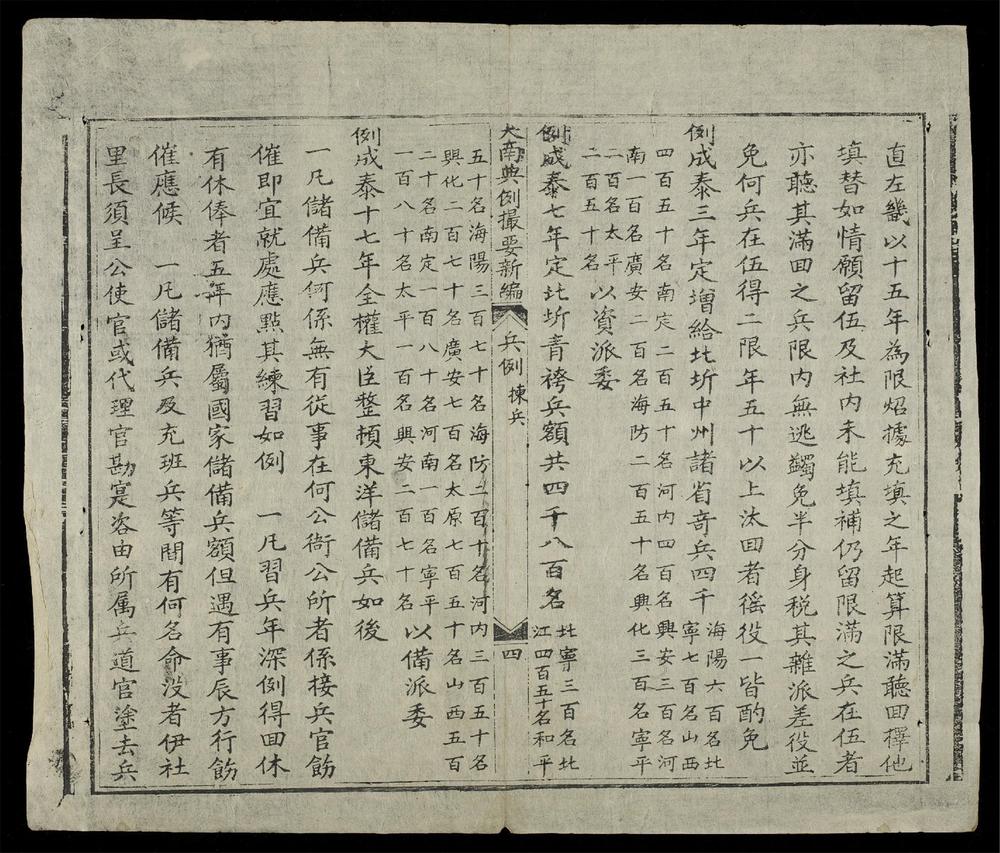 直左畿以十五年為限炤據充填之年起算限滿聽回擇他
填替如情願留伍及社内未能填補仍留限滿之兵在伍者
亦聽其滿回之兵限内無逃蠲免半分身税其雜派差役並
免何兵在伍得二限年五十以上汰回者徭役一皆酌免
例成泰三年定增給北圻中州諸省奇兵四千
海陽六百名北
寧七百名山西
四百五十名南定二百五十名河内四百名興安三百名河
南一百名廣安二百名海防二百五十名興化三百名寧平
二百名太平
二百五十名
以資派委
例成泰七年定北圻青袴兵額共四千八百名
北寧三百名北
江四百五十名和平
大南典例撮要新編
兵例
揀兵
四
五十名海陽三百七十名海防二百十名河内三百五十名
興化二百七十名廣安七百名太原七百五十名山西五百
二十名南定一百八十名河南一百名寧平
一百八十名太平一百名興安二百七十名
以備派委
例成泰十七年全權大臣整頓東洋儲備兵如後
一凡儲備兵何係無有從事在何公衙公所者係接兵官飭
催即宜就處應點其練習如例　一凡習兵年深例得回休
有休俸者五年内猶屬國家儲備兵額但遇有事辰方行飭
催應候　一凡儲備兵及充班兵等間有何名命没者伊社
里長須呈公使官或代理官勘寔咨由所属兵道官塗去兵